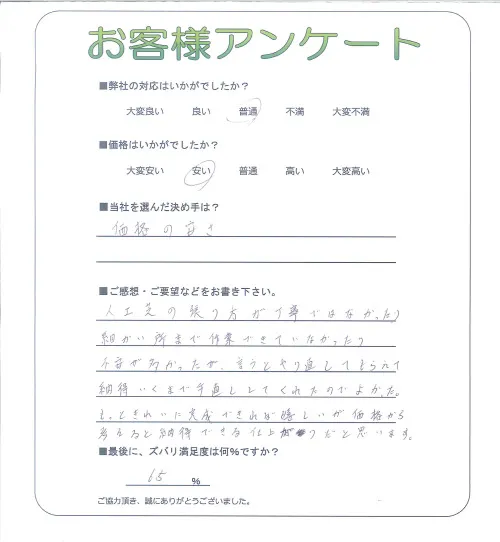 お客様アンケート
■弊社の対応はいかがでしたか？
大変良い　良い　普通　不満　大変不満
■価格はいかがでしたか？
大変安い　安い　普通　高い　大変高い
■当社を選んだ決め手は？
価格の安さ
■ご感想・ご要望などをお書き下さい。
人工芝の張り方が丁寧ではなかったり
細かい所まで作業できていなかったり
不安が多かったが、言うとやり直してもらえて
納得いくまで手直ししてくれたのでよかった。
もっときれいに完成できれば嬉しいが価格から
考えると納得できる仕上がりだと思います。
■最後に、ズバリ満足度は何%ですか？
65 %
ご協力頂き、誠にありがとうございました。